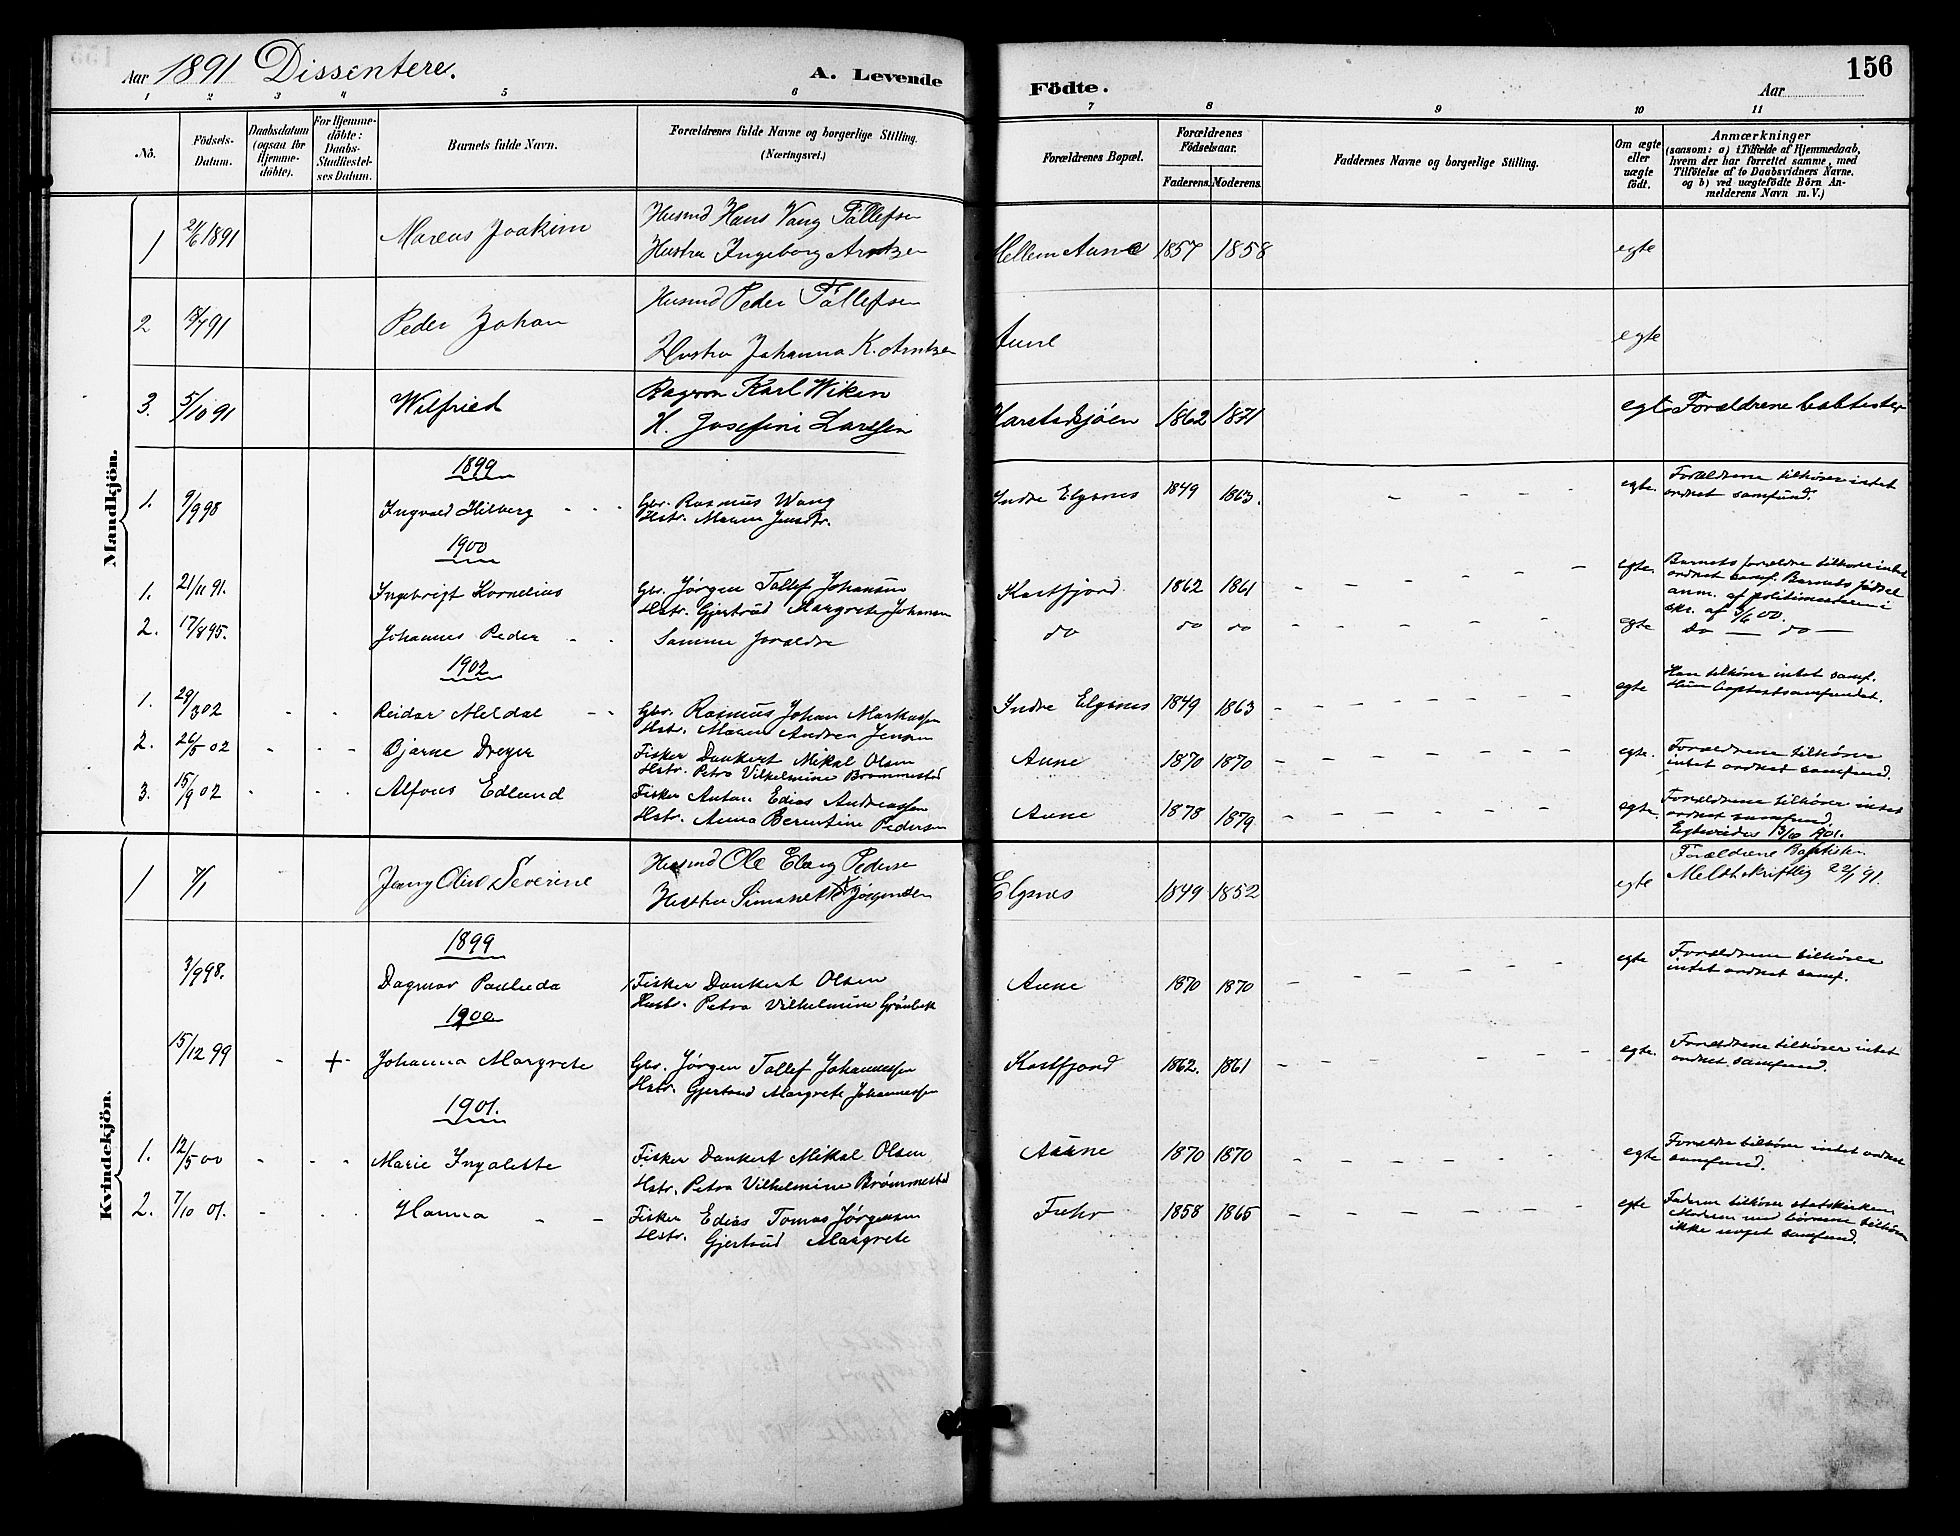 Aar 1891 Dissentere.
A. Levende
Födte.
Aar
156
1 2 3 4 5 6 7 8 9 10 11
No.
Födsels-
Datum.
Daabsdatum
(ogsaa for
Hjemme-
döbte).
For Hjemme-
döbte:
Daabs-
Stadfæstel-
ses Datum.
Barnets fulde Navn.
Forældrenes fulde Navne og borgerlige Stilling.
(Næringsvei.)
Forældrenes Bopæl.
Forældrenes
Födselsaar.
Faderens. Moderens.
Faddernes Navne og borgerlige Stilling.
Om ægte
eller
uægte
födt.
Anmærkninger
(saasom: a) i Tilfælde af Hjemmedaab,
hvem der har forrettet samme, med
Tilföielse af to Daabsvidners Navne.
og b) ved uægtefödte Börn An-
melderens Navn m. V.)
Mandkjön.
1 2/6 1891 Marcus Joakim Husmd Hans Vang Tållefsen
Hustru Ingeborg Arntzen
Hellem Aune 1857 1858 egte
2 /7 91 Peder Johan Husmd Peder Tållefsen
Hustru Johanna K. Arntzen
Aune egte
3. 5/10 91 Wilfried Karl Wiken
H. Josefine Larssen
Harstadsjöen 1862 1871 egte Forældrene babtister
1899
1. 9/9 98 Ingvald Hilberg - - Gbr. Rasmus Wang
Hstr. Maren Jensdtr.
Indre Elgsnes 1849 1863. - - - - egte. Forældrene tilhører intet
ordnet samfund.
1900
1. 21/11 91. Ingebrigt Kornelius Gbr. Jørgen Tollef Johansen
Hstr. Gjertrud Margrete Johansen
Kastfjord 1862 1861 - - - - - egte. Barnets forældre tilhører intet
ordnet samf. Barnets fødsel
anm. af politimesteren i
skr. af 9/6 00.
2. 17/8 95. Johannes Peder - - Samme forældre
do do do - - - - - - egte do — do —
1902
1. 29/3 02 - - - Reidar Meldal - - Gbr. Rasmus Johan Markussen
Hstr. Maren Andrea Jensen
Indre Elgsnes 1849 1863 - - - - - - egte Han tilhører intet samf.
Hun baptistsamfundet.
2. 26/5 02 - - - Bjarne Dreyer Fisker Dankert Mikal Olsen
Hstr. Petra Vilhelmine Brømmestad
Aune 1870 1870 - - - - - - egte. Forældrene tilhører
intet ordnet samfund.
3. 15/9 02 - - - Alfons Edlund Fisker Anton Edias Andreassen
Hstr. Anna Berentine Pedersen
Aune 1878 1879 - - - - - - egte. Forældrene tilhører intet
ordnet samfund.
Egteviedes 13/10 1901.
Kvindekjön.
1 7/1 Jenny Olise Severine Husmd Ole Elberg Pedersen
Hustru Simonette Jörgensen
Elgsnes 1849 1852 egte Forældrene Baptister
Meldt skriftlig 22/1 91.
1899
3/9 98. Dagmar Paulida Fisker Dankert Olsen
Hustr. Petra Vilhelmine Grønbek
Aune 1870 1870 - - - - - egte Forældrene tilhører
intet ordnet samf.
1900
15/12 99 - + - Johanna Margrete Gbr. Jørgen Tollef Johannessen
Hstr. Gjertrud Margrete Johannessen
Kastfjord 1862. 1861 - - - - - - egte. Forældrene tilhører intet
ordnet samfund.
1901.
1. 12/5 00 - - - Marie Ingalette Fisker Dankert Mikal Olsen
Hstr. Petra Vilhelmine Brømmestad
Aaune 1870 1870 - - - - - - egte Forældre tilhører intet ordnet
samfund.
2. 7/10 01. - - - Hanna - - Fisker Edias Tomas Jørgensen
Hstr. Gjertrud Margrete
1858 1865 - - - - - - egte Faderen tilhører statskirken
Moderen med børnene tilhører
ikke noget samfund.